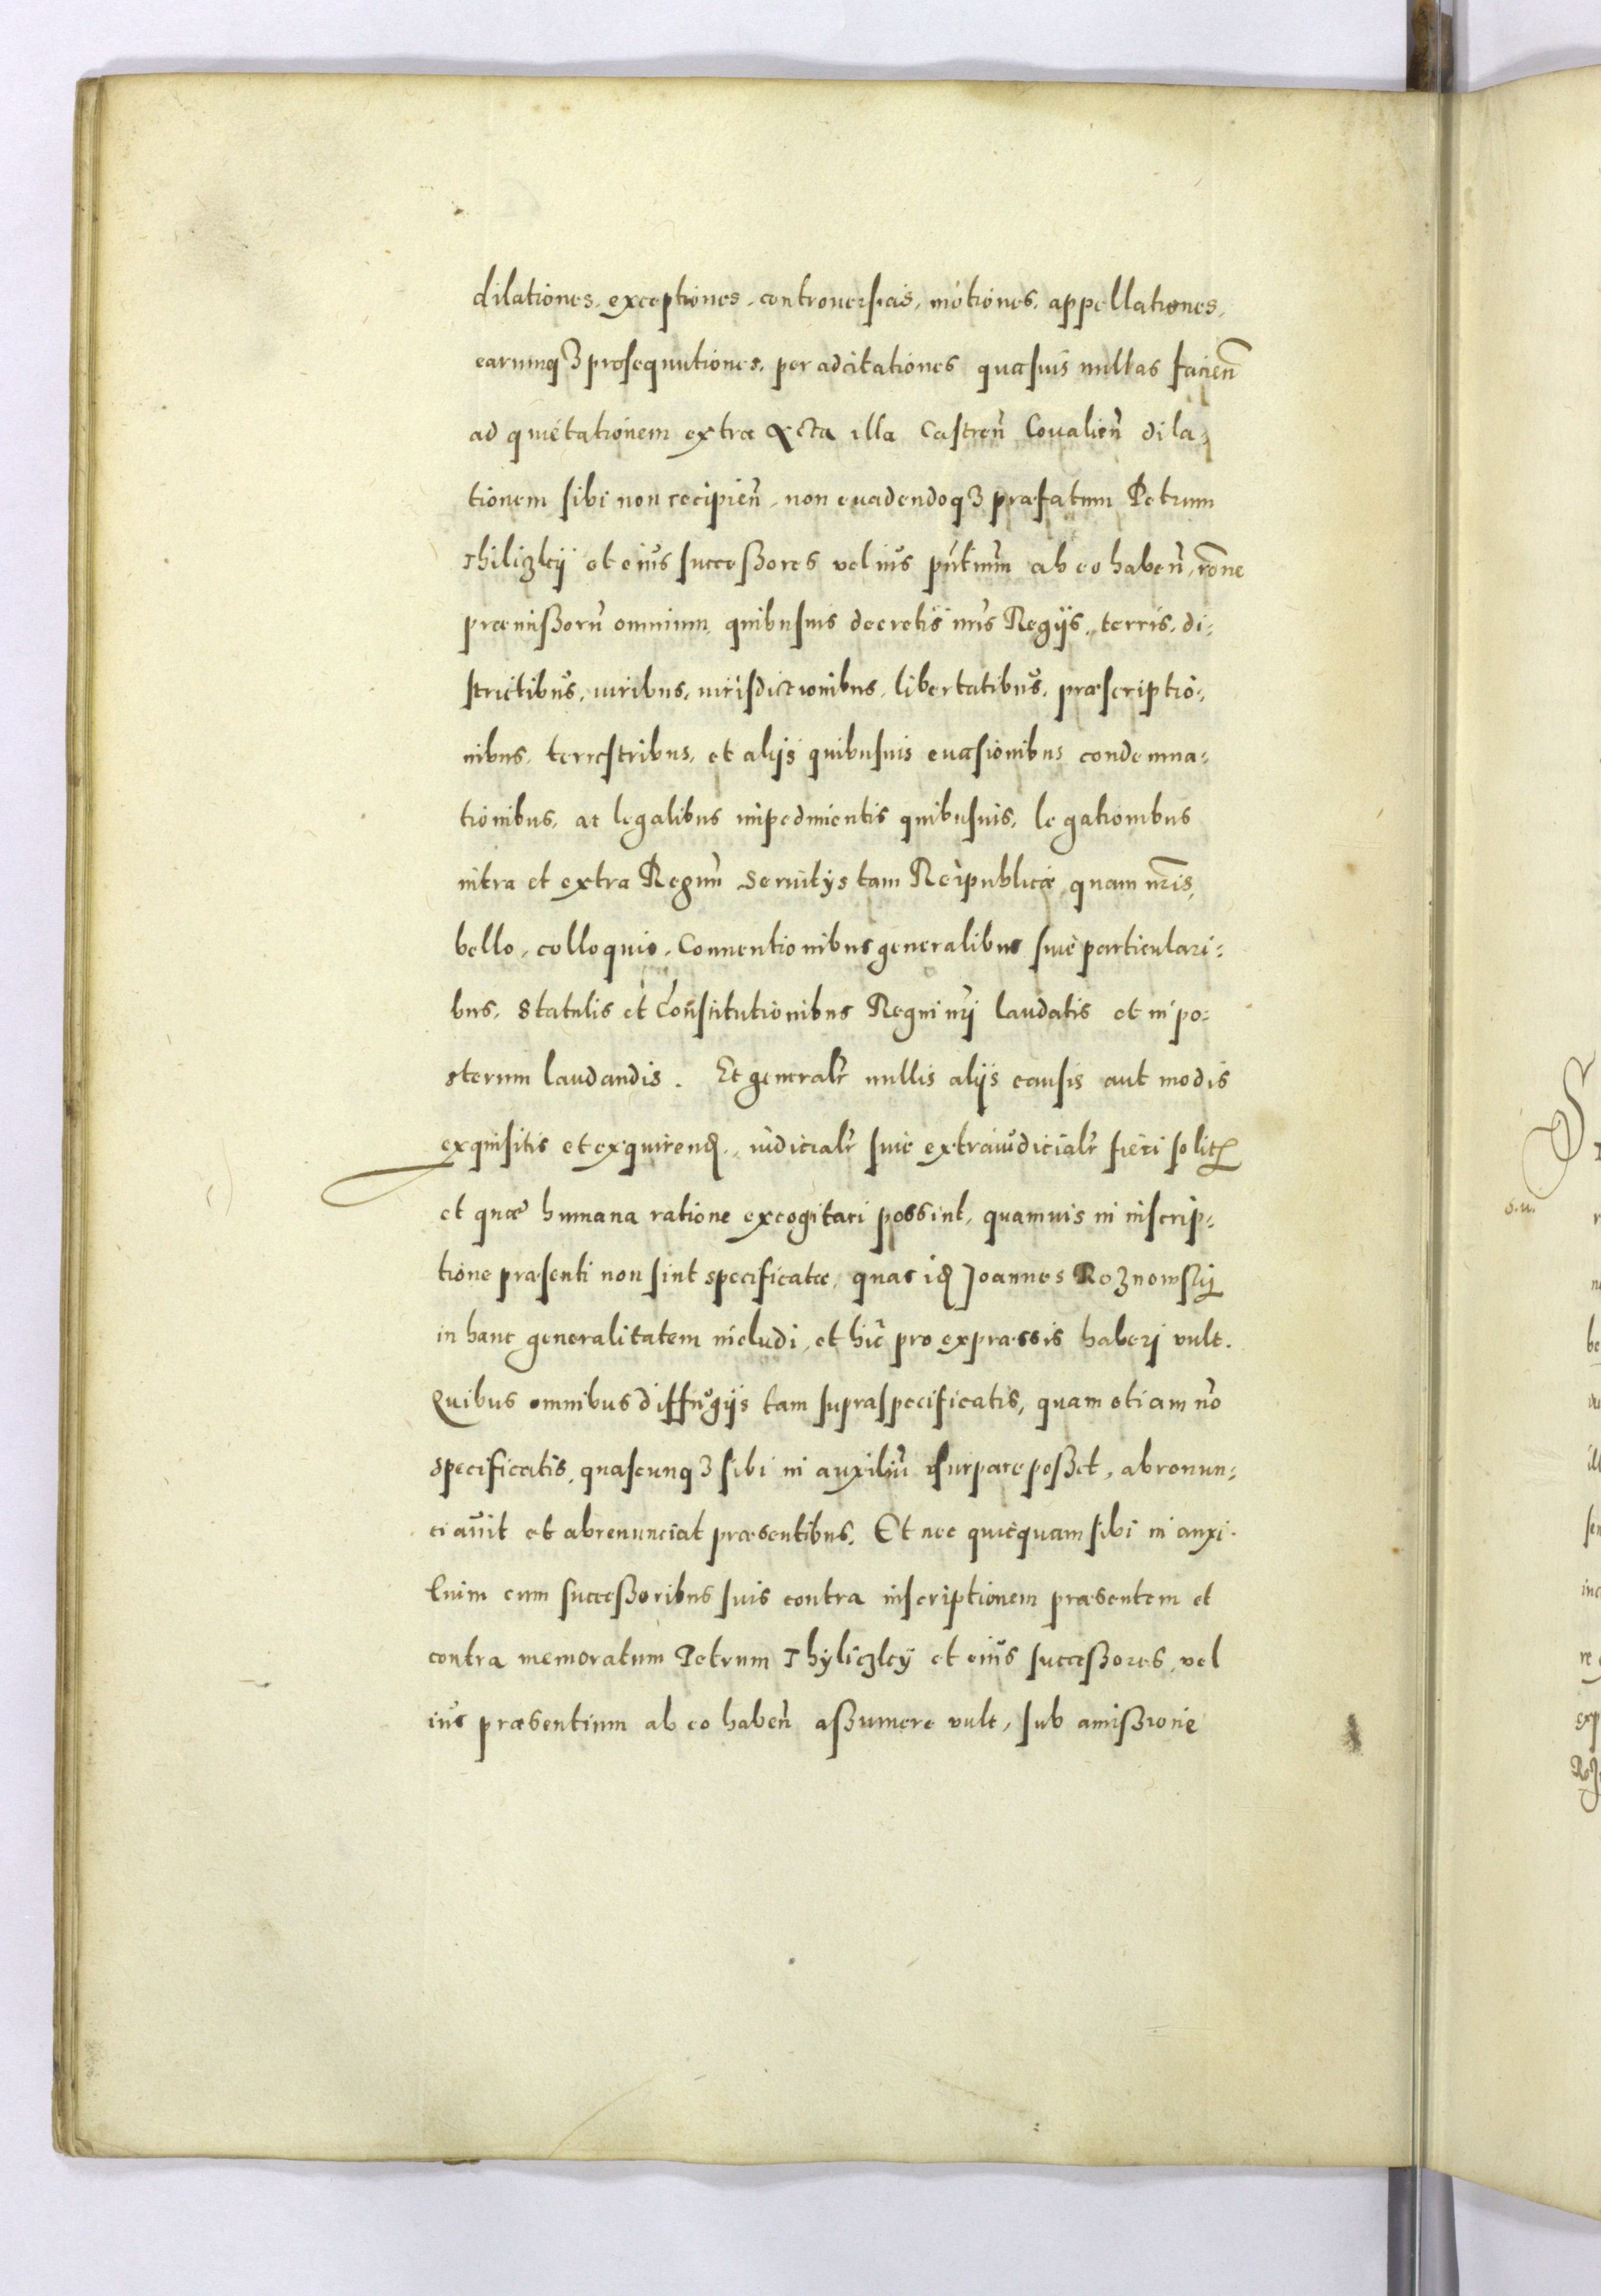 dilationes, exceptiones, controuersias, motiones, appellationes,
earumq3 prosequutiones, per adcitationes quasuis nullas facień
ad quietationem extra Acta illa Castreń Coualień dila-
tionem sibi non recipień, non euadendoq3 præfatum Petrum
Thiliczky et eius successores vel ius pńtium ab eo habeń, rõne
præmissorũ omnium, quibusuis decretis nrĩs Regijs, terris, di-
strictibus, iuribus, iurisdictionibus, libertatibus, præscriptio-
nibus, terrestribus, et alijs quibusuis euasionibus condemna-
tionibus, ac legalibus impedimentis quibusuis, legationibus
intra et extra Regnũ Seruitijs tam Reipublicæ quam nrĩs,
bello, colloquio, Conuentionibus generalibus siue particulari-
bus, Statutis et Constitutionibus Regni nrĩ laudatis et in po-
sterum laudandis. Et generalr̃ nullis alijs causis aut modis
exquisitis et exquirend, iudicialr̃ siue extraiudicialr̃ fieri solit
et quæ humana ratione excogitari possint, quamuis in inscrip-
tione præsenti non sint specificatæ, quas id Joannes Rożnowskj
in hanc generalitatem includi, et hic pro expræssis haberj vult.
Quibus omnibus diffugijs tam supraspecificatis, quam etiam nõ
specificatis, quascunq3 sibi in auxiliũ usurpare posset, abrenun-
ciauit et abrenunciat præsentibus. Et nec quicquam sibi in auxi-
lium cum successoribus suis contra inscriptionem præsentem et
contra memoratum Petrum Thyliczky et eius successores, vel
ius præsentium ab eo habeń assumere vult, sub amissione
S
s.u.